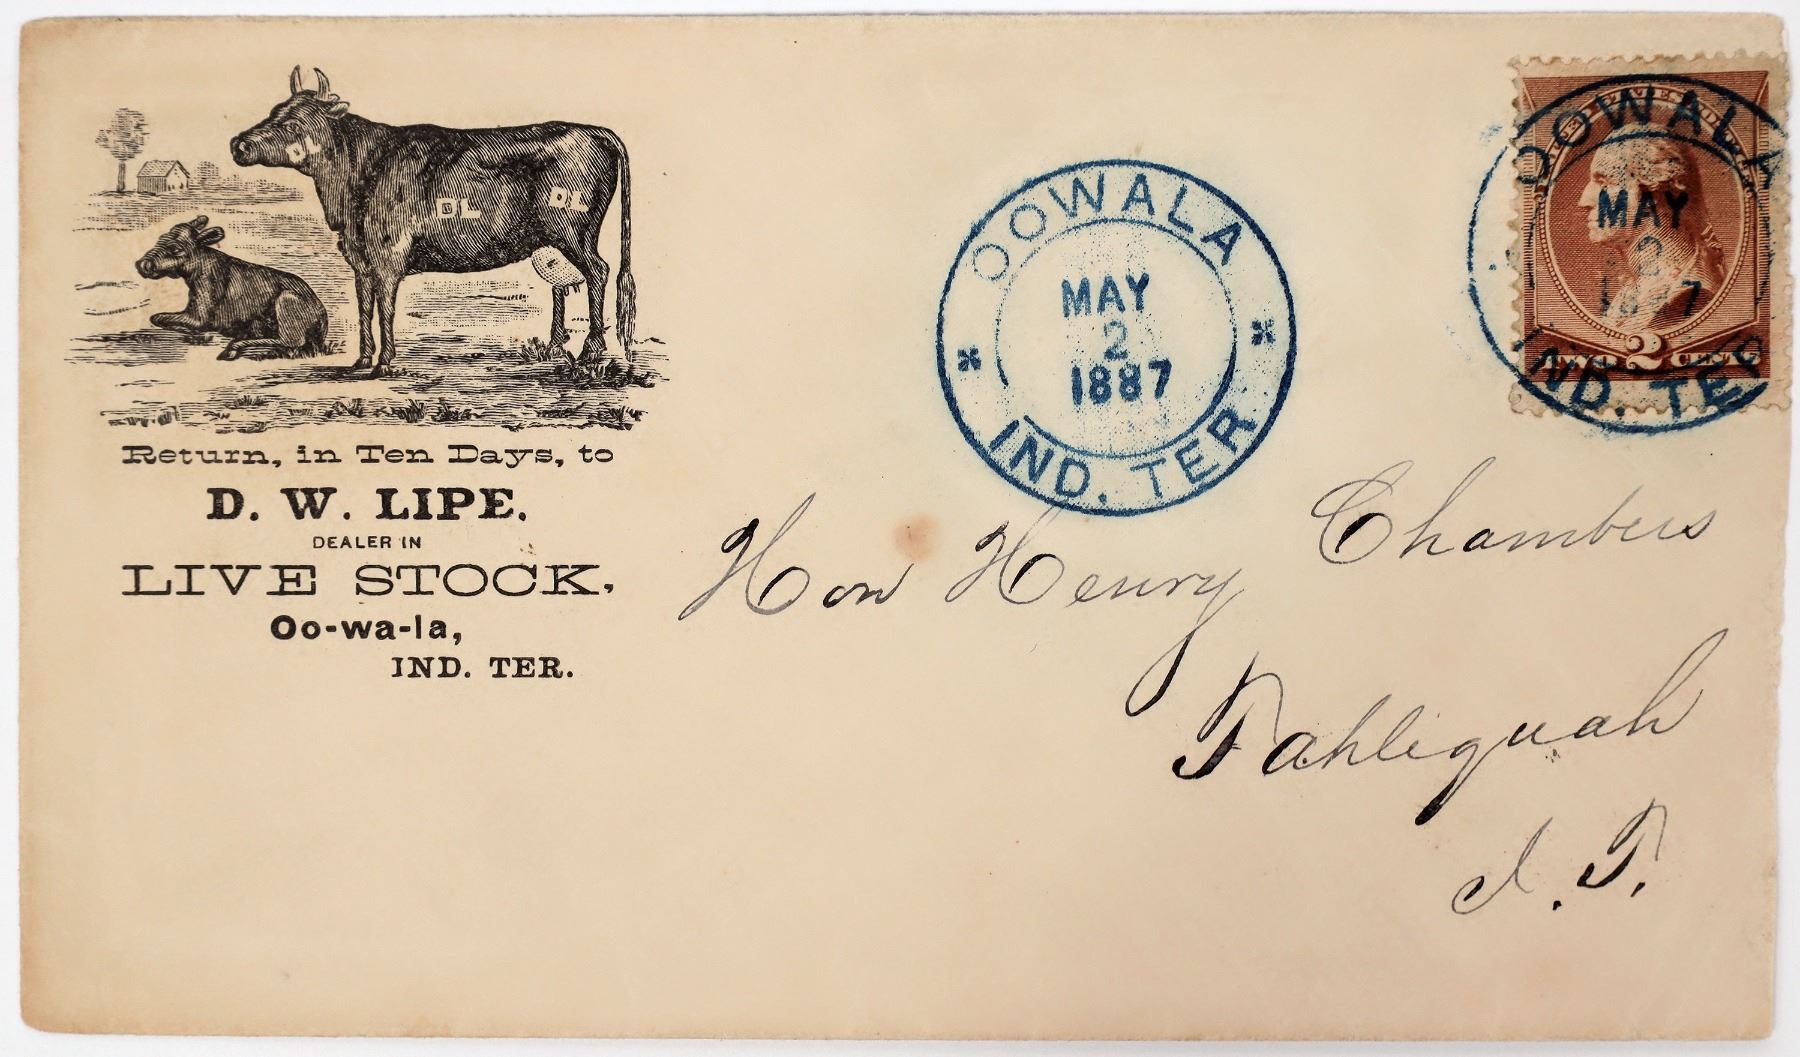 DL
DL DL
Return, in Ten Days, to
D. W. LIPE.
DEALER IN
LIVE STOCK,
Oo-wa-la,
IND. TER.
OOWALA
MAY
2
1887
IND. TER
OOWALA
MAY
2
1887
IND. TER
2
Hon Henry Chambers
Tahlequah
I. T.